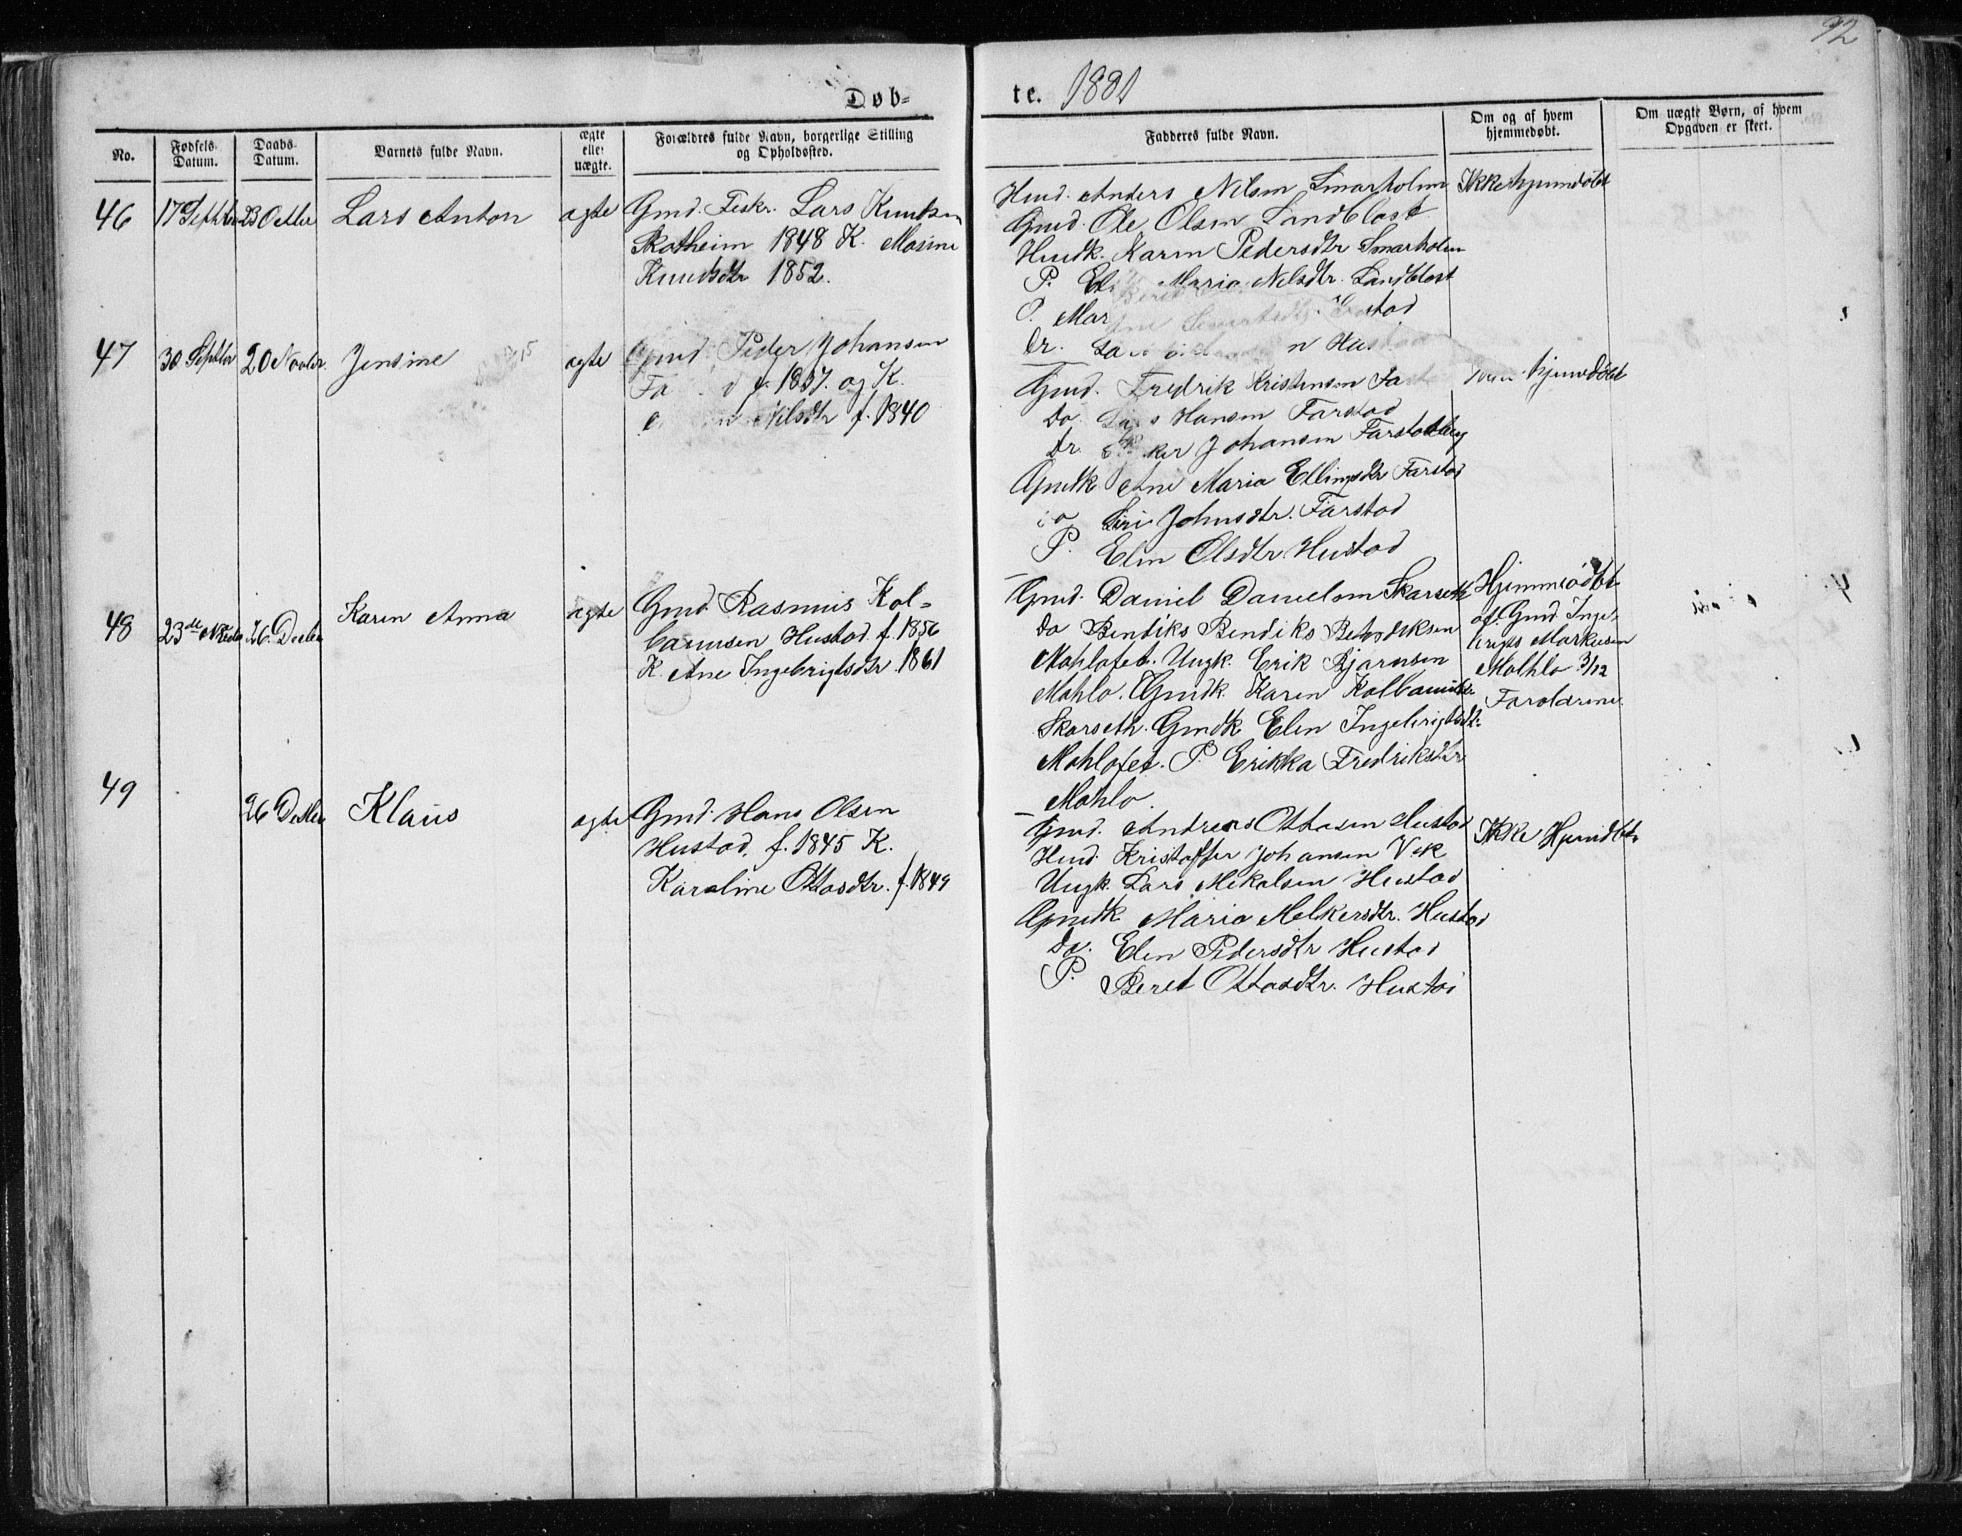 92
Døb-
te. 1881
No.
Fødsels-
Datum.
Daabs-
Datum.
Barnets fulde Navn.
ægte
eller
uægte.
Forældres fulde Navn, borgerlige Stilling
og Opholdssted.
Fadderes fulde Navn.
Om og af hvem
hjemmedøbt.
Om uægte Børn, af hvem
Opgaven er skeet.
46 17 Septbr 23 Octbr Lars Anton ægte Gmd. Lars Knutsen
Skotheim 1848 K. Masine
Knudsdtr 1852.
Hmd. Anders Nilsen Smørholm
Gmd. Ole Olsen Sandblost
Hmdk. Karen Pedersdtr Smørholm
P. Maria Nilsdtr. Sandblost
P. Mar
Dr. n Hus
Ikke hjemdøbt
47 30 Septbr 20 Novbr Jensine ægte Gmd. Peder Johansen
Fa d f. 1837. og K.
Nilsdtr f. 1840
Gmd. Fredrik Kristensen Fa
Do. Lars Hansen Farstad
Dr. Johansen Farstad
Gmdk Ane Maria Ellingsdtr Farstad
Do Siri Johnsdtr. Farstad
P. Elen Olsdtr. Hustad
hjemdøbt
48 23de Novbr 26. Decbr Karen Anna ægte Gmd. Rasmus Kol-
bansen Hustad f. 1856
K. Ane Ingebrigtsdtr 1861
Gmd. Daniel Danielsen Skarseth
Do Bendiks Bendiksen
Mohlofet. Ungk. Erik Bjørnsen
Mohlo. Gmdk. Karen
Skarseth. Gmdk Elen Ingebrigtsdtr
Mohlofet. P. Erikka Fredriksdtr
Mohlo.
Hjemmedøbt
af Gmd. Inge-
brigt Markusen
Mohlo 3/12
Forældrene
49 26 Decbr Klaus ægte Gmd. Hans Olsen
Hustad, f. 1845 K.
Karoline Ottosdtr. f. 1849
Gmd. Andreas Ottosen Hustad
Hmd. Kristoffer Johansen Vik
Ungk. Lars Mikalsen Hustad
Gmdk Maria Melkersdtr. Hustad
Do. Elen Pedersdtr Hustad
P. Beret Ottosdtr. Hustad
Ikke Hjemdbt.